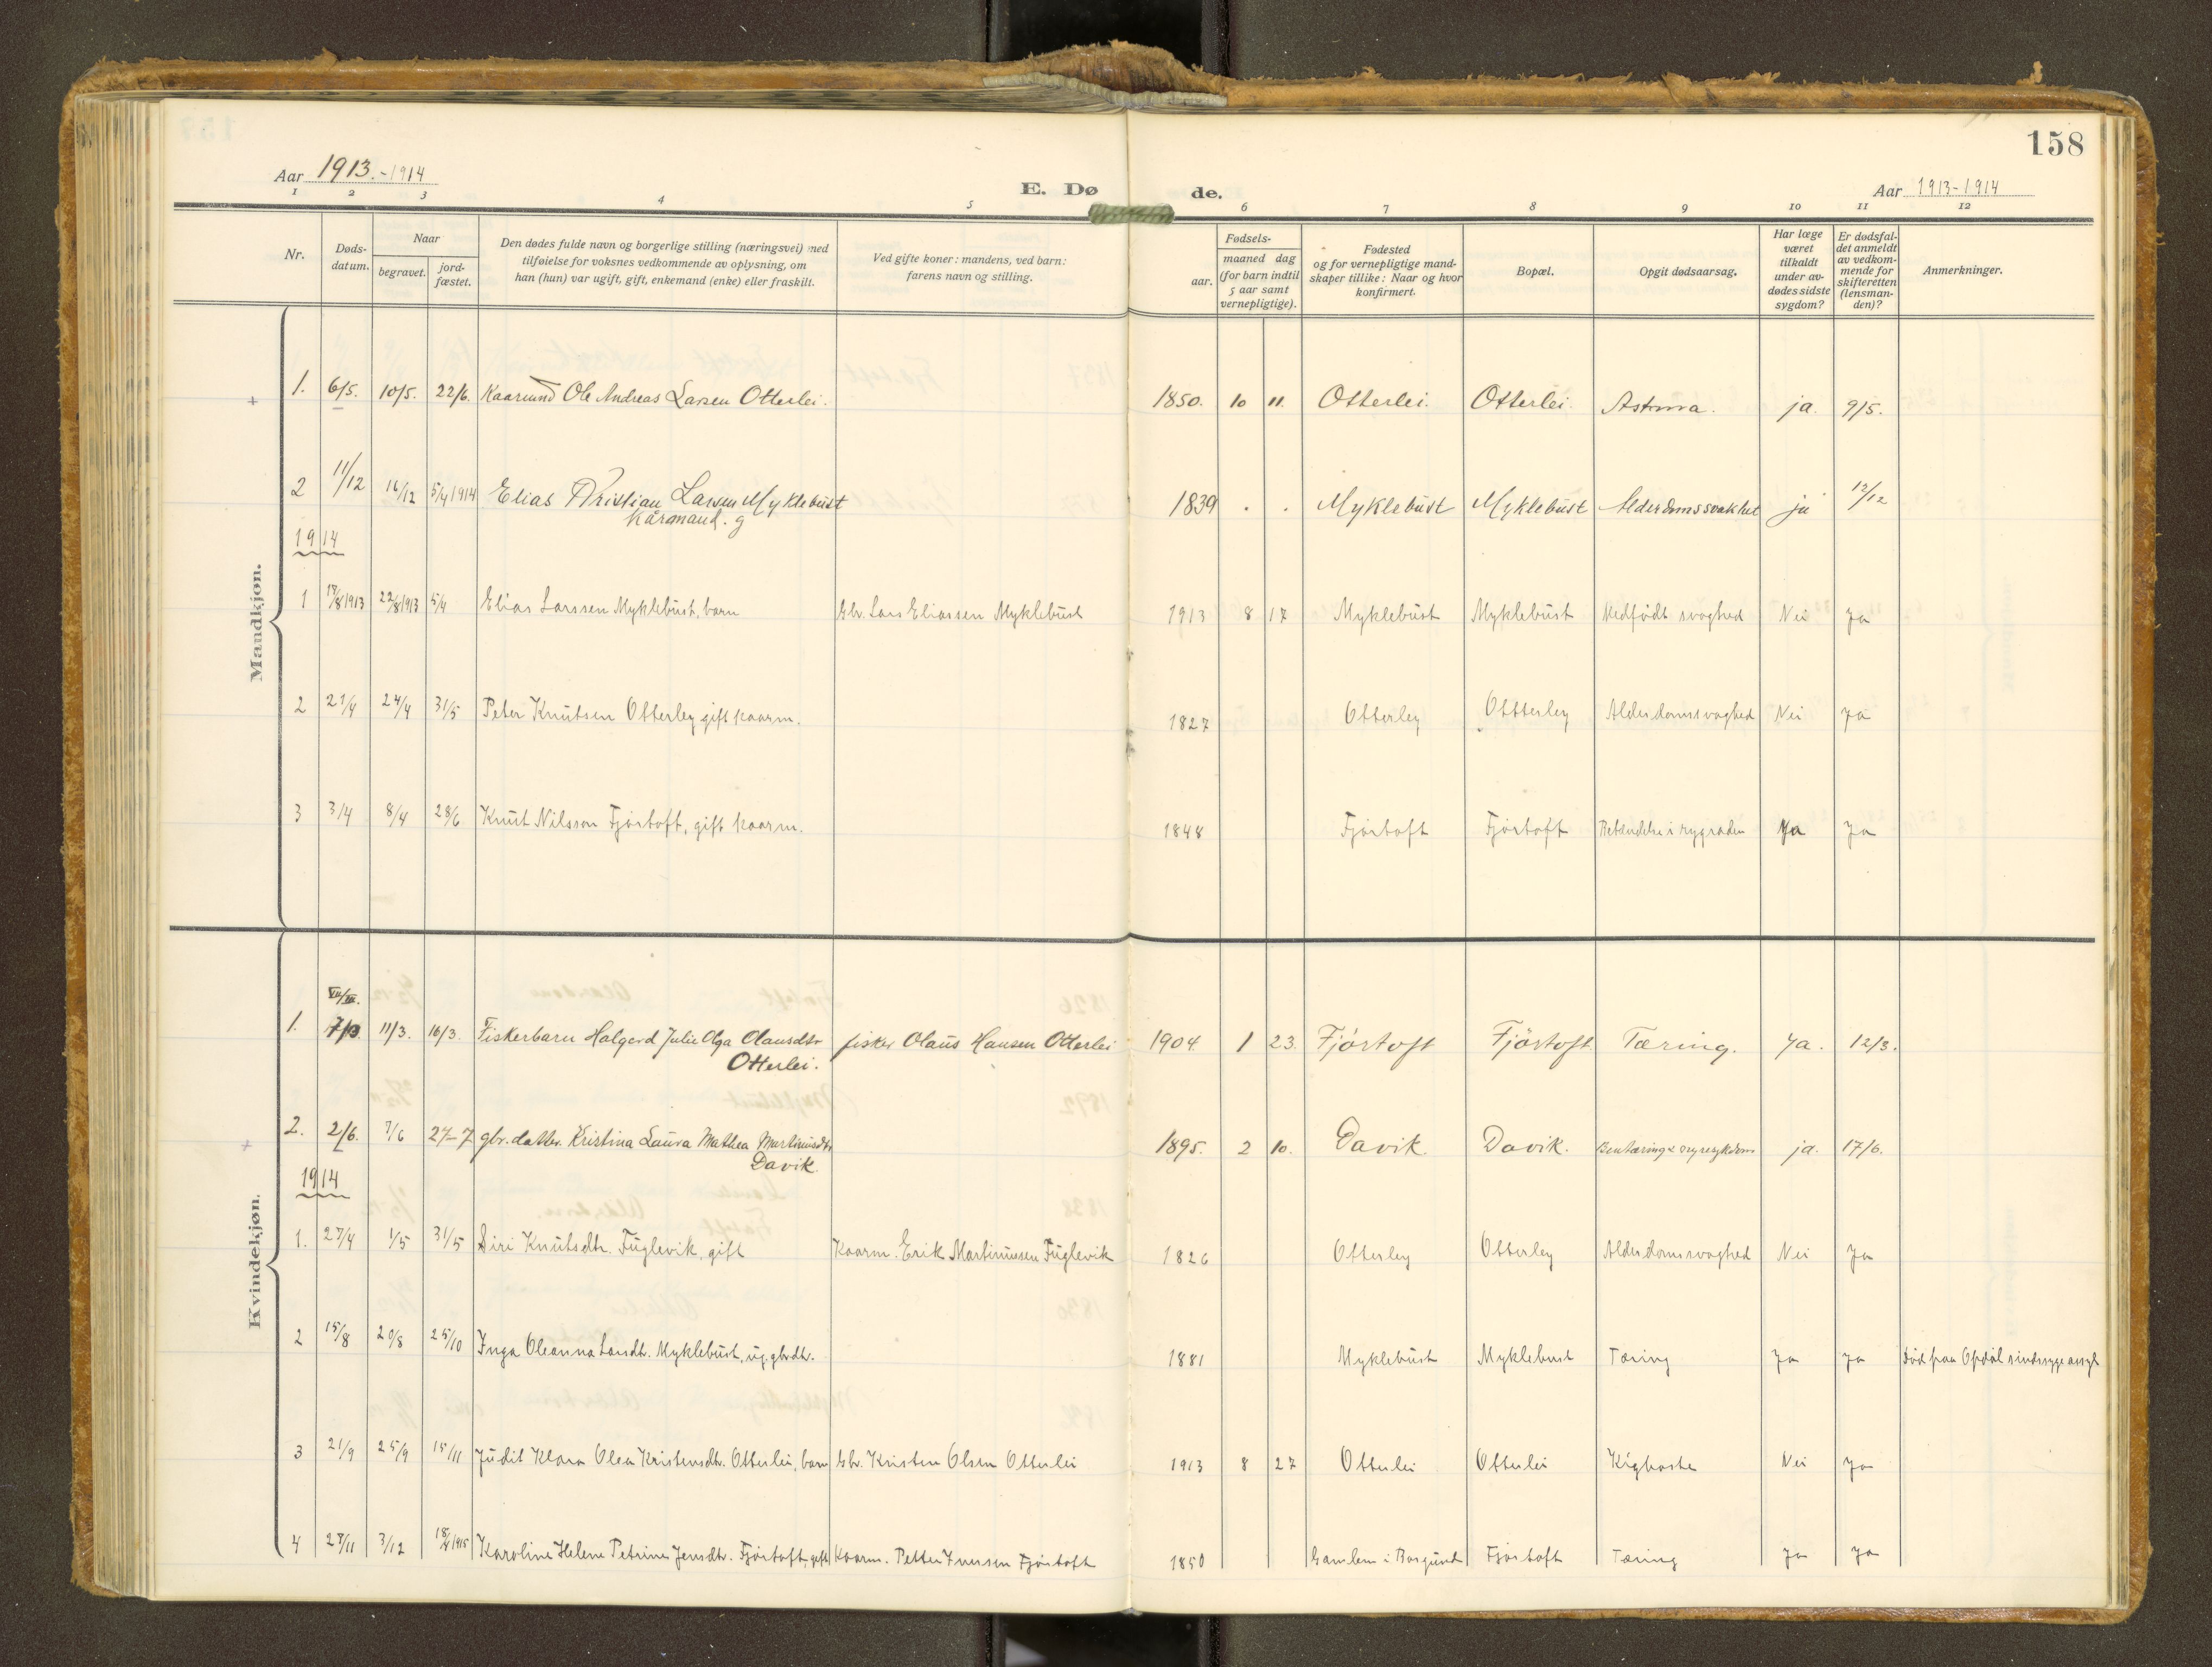 158
Aar 1913.-1914
E. Dø de.
Aar 1913-1914
1 2 3 4 5 6 7 8 9 10 11 12
Nr.
Døds-
datum.
Naar
begravet.
jord-
fæstet.
Den dødes fulde navn og borgerlige stilling (næringsvei) med
tilføielse for voksnes vedkommende av oplysning, om
han (hun) var ugift, gift, enkemand (enke) eller fraskilt.
Ved gifte koner: mandens, ved barn:
farens navn og stilling.
Fødsels-
aar.
maaned dag
(for barn indtil
5 aar samt
vernepligtige).
Fødested
og for vernepligtige mand-
skaper tillike: Naar og hvor
konfirmert.
Bopæl.
Opgit dødsaarsag.
Har læge
været
tilkaldt
under av-
dødes sidste
sygdom?
Er dødsfal-
det anmeldt
av vedkom-
mende for
skifteretten
(lensman-
den)?
Anmerkninger.
Mandkjøn.
1. 6/5. 10/5. 22/6. Kaarmand Ole Andreas Larsen Otterlei. 1850. 10 11. Otterlei. Otterlei. Astma. ja. 9/5.
2 11/12 16/12 5/4 1914 Elias Kristian Larsen Myklebust 1839 . . Myklebust Myklebust Alderdomssvakhet ja 12/12
Kårmand. g
1914
1 18/8 1913 22/8 1913 5/4 Elias Larssen Myklebust, barn Gbr. Lars Eliassen Myklebust 1913 8 17 Myklebust Myklebust Medfødt svaghed Nei Ja
2 21/4 24/4 31/5 Peter Knutsen Otterley gift kaarm. 1827 Otterley Ottterley Alderdomssvaghed Nei Ja
3 3/4 8/4 28/6 Knut Nilsson Fjørtoft, gift kaarm. 1848 Fjørtoft Fjørtoft Betændelse i rygraden Ja Ja
Kvindekjøn.
VII/III.
1. 7/3 11/3. 16/3. Fiskerbarn Halgerd Julie Olga Olausdtr fisker Olaus Hansen Otterlei 1904 1 23. Fjørtoft Fjørtoft Tæring. Ja. 12/3.
Otterlei.
2. 2/6. 7/6 27-7 gbr. datter. Kristina Laura Mathea Martinusdtr. 1895. 2 10. Davik. Davik. Bentæring & nyresykdom ja. 17/6.
Davik.
1914
1. 27/4 1/5 31/5 Siri Knutsdtr. Fuglevik, gift Kaarm. Erik Martinusen Fuglevik 1826 Otterley Otterley Alderdomssvaghed Nei Ja
2 15/8 20/8 25/10 Inga Oleanna Larsdtr. Myklebust, ug. gbrdtr. 1881 Myklebust Myklebust Tæring Ja Ja Død paa Opdøl sindssygeasyl
3 21/9 25/9 15/11 Judit Klara Olea Kristensdtr. Otterlei, barn Gbr. Kristen Olsen Otterlei 1913 8 27 Otterlei Otterlei Kighoste Nei Ja
4 28/11 3/12 18/4 1915 Karoline Helene Petrine Jensdtr. Fjørtoft, gift Kaarm. Petter Iversen Fjørtoft 1850 Gamlem i Borgund Fjørtoft Tæring Ja Ja